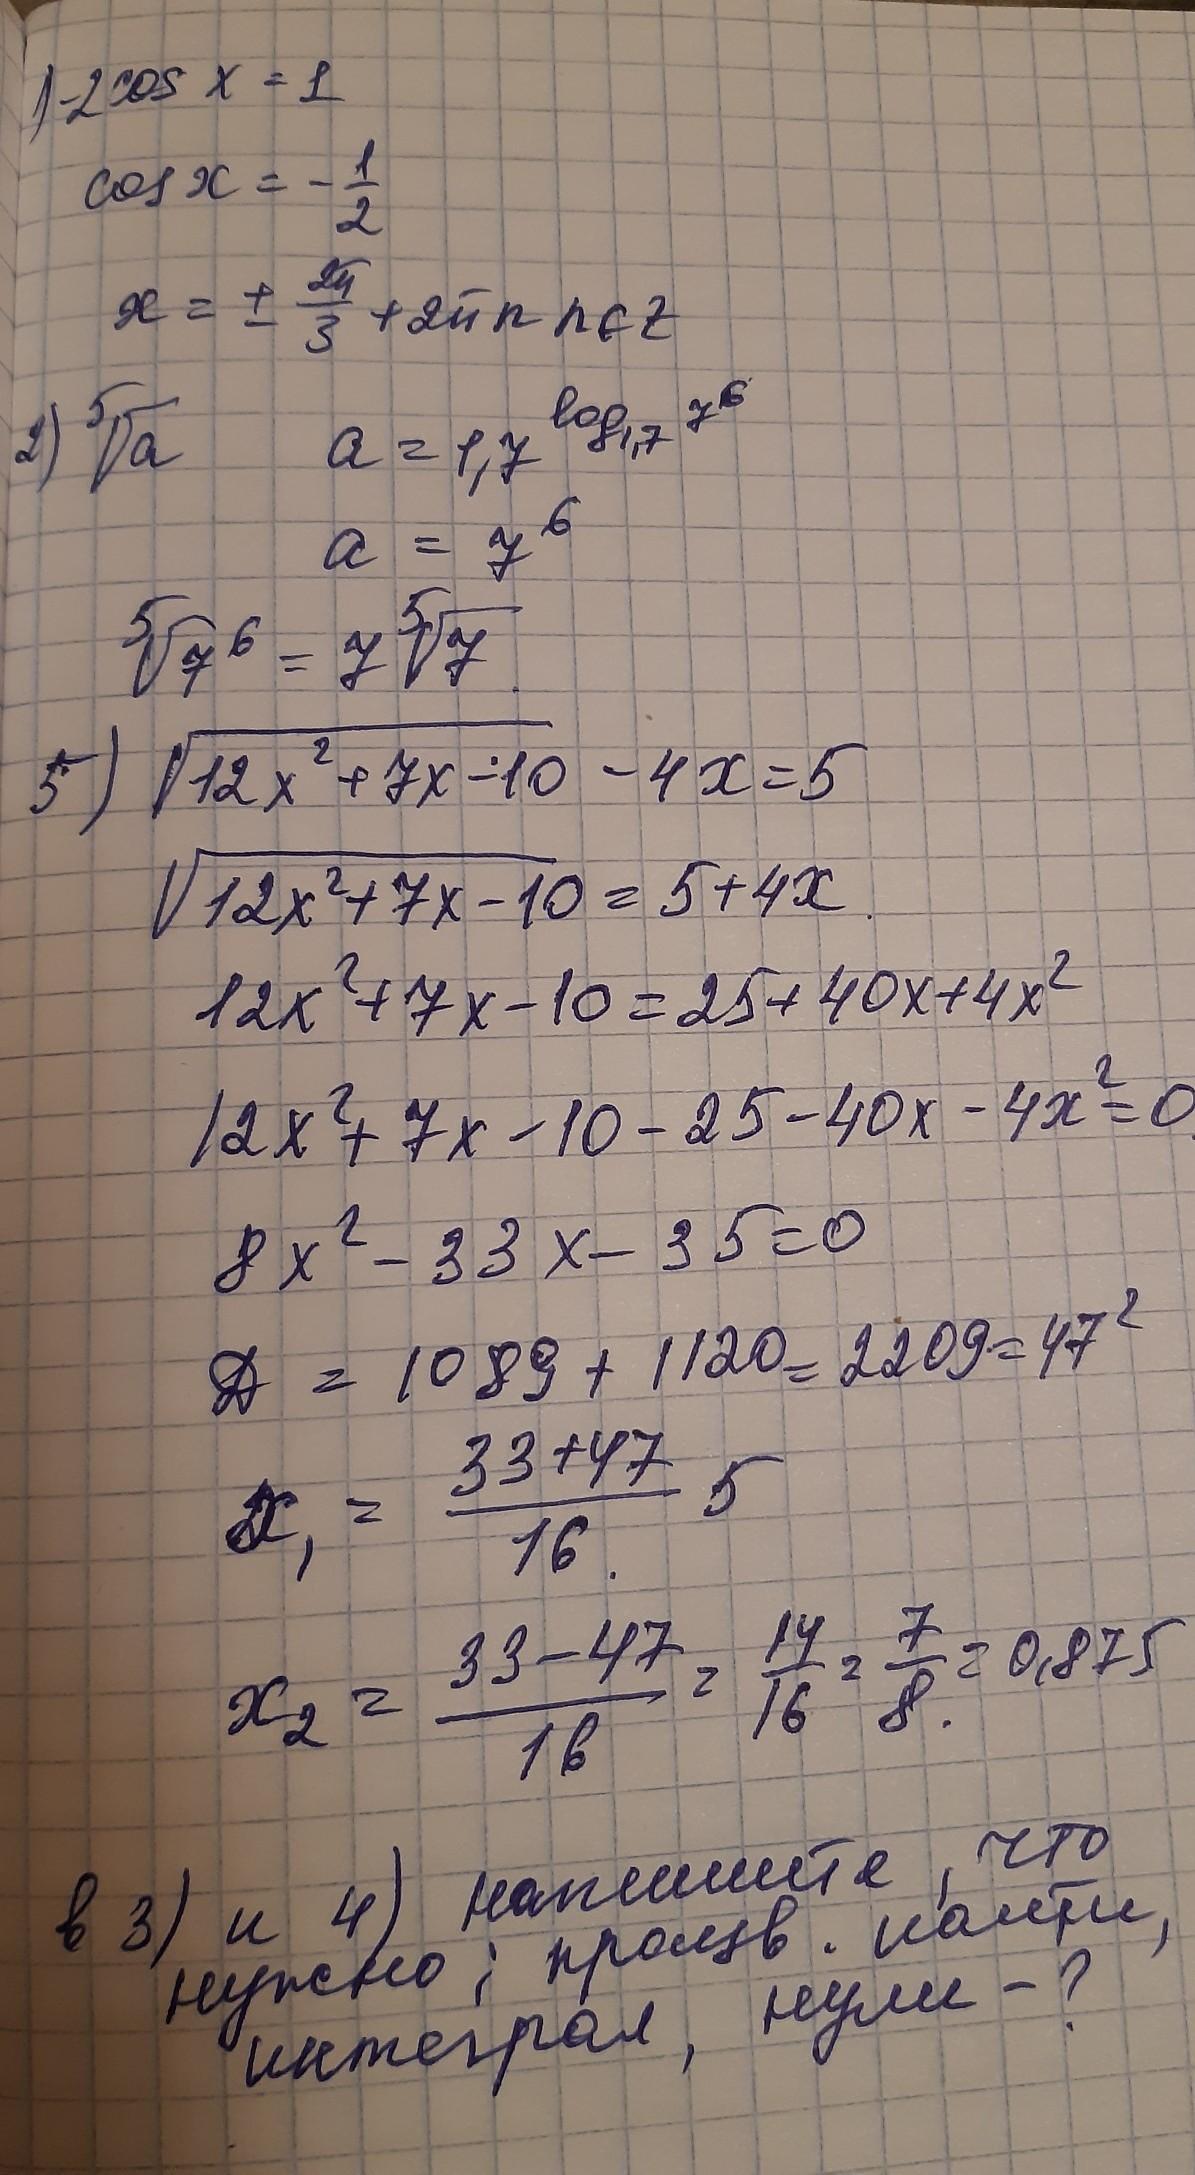 1) -2cos x = 1
cos x = - 1/2
x = ± 2π/3 + 2πn n∈Z
2) ⁵√a a = 1,7^(log_{1,7} 7⁶)
a = 7⁶
⁵√7⁶ = 7 ⁵√7
5) √(12x² + 7x - 10) - 4x = 5
√(12x² + 7x - 10) = 5 + 4x
12x² + 7x - 10 = 25 + 40x + 4x²
12x² + 7x - 10 - 25 - 40x - 4x² = 0
8x² - 33x - 35 = 0
Д = 1089 + 1120 = 2209 = 47²
x₁ = (33 + 47)/16 5
x₂ = (33 - 47)/16 = 14/16 = 7/8 = 0,875
в 3) и 4) напишите, что
нужно; произв. найти,
интеграл, нули - ?